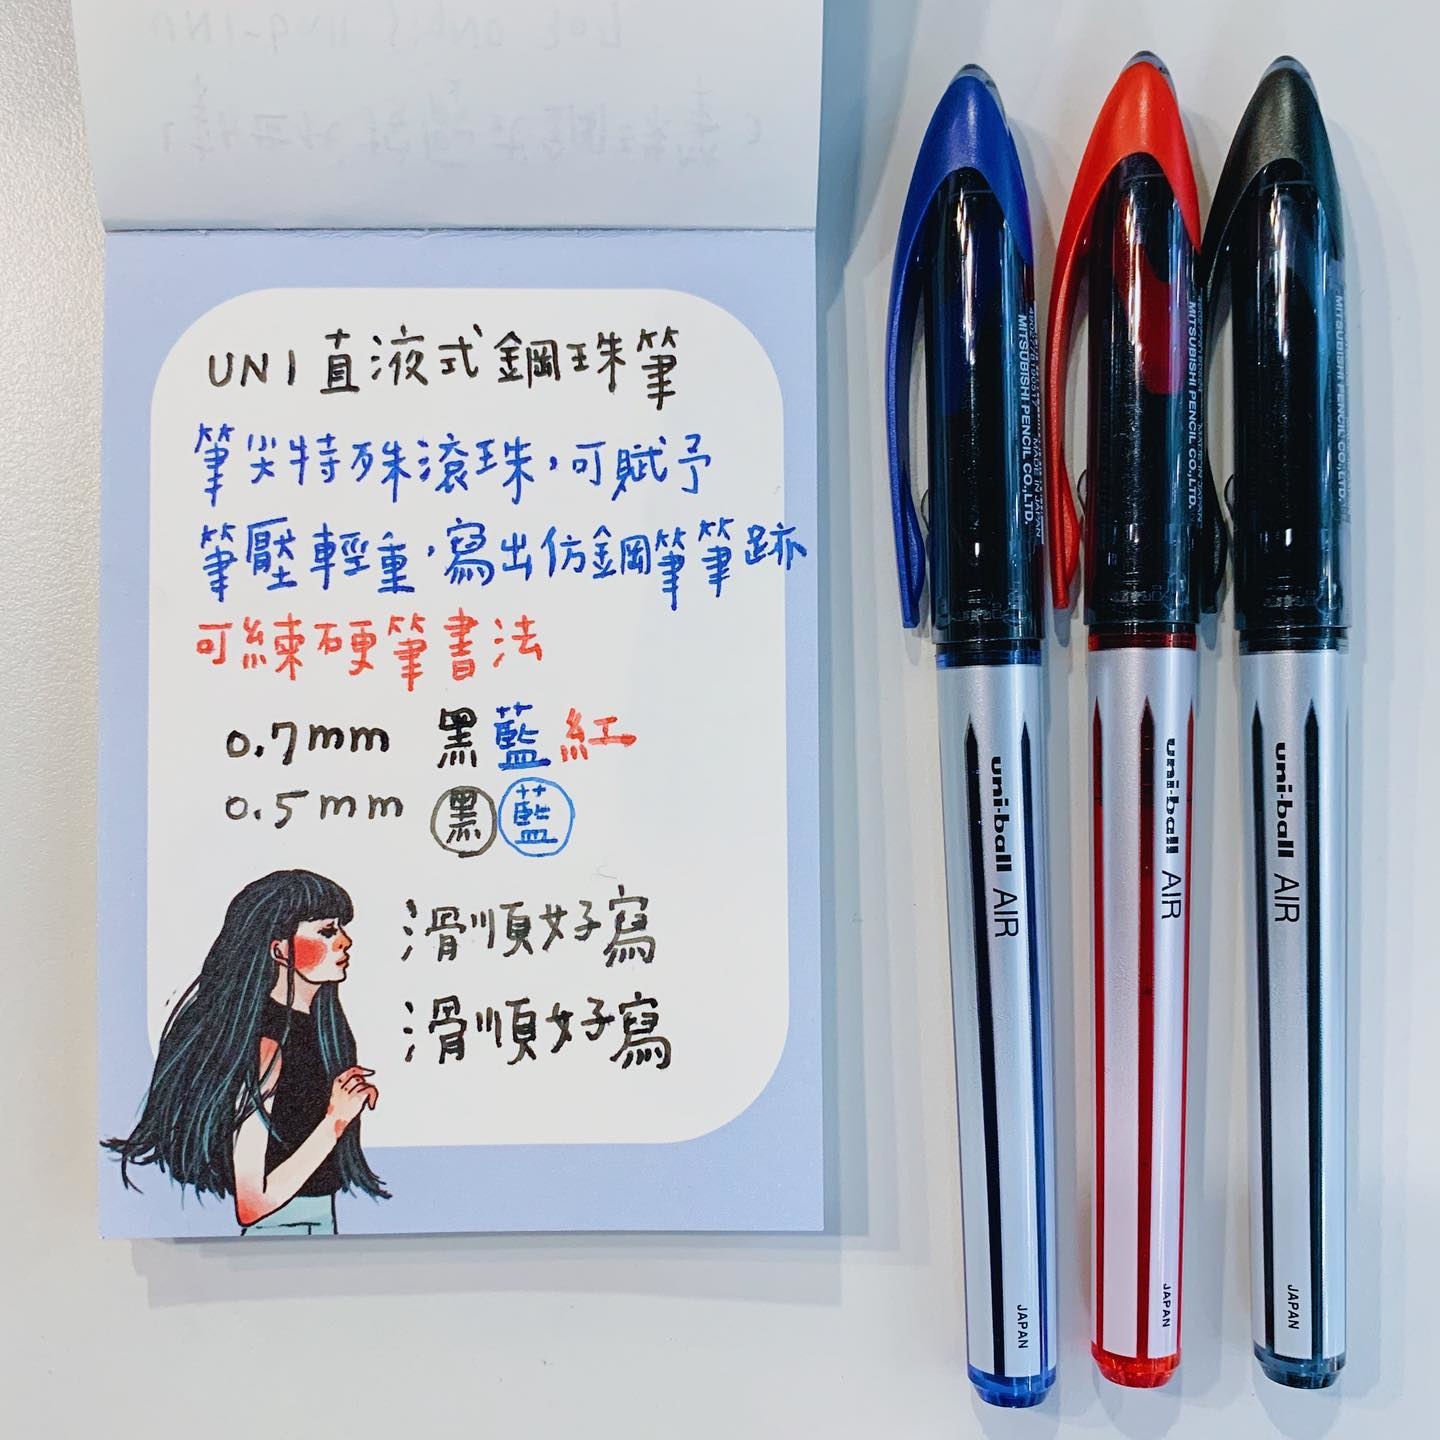 UNI 直液式鋼珠筆
筆尖特殊滾珠，可賦予
筆壓輕重，寫出仿鋼筆筆跡
可練硬筆書法
0.7mm 黑藍紅
0.5mm 黑藍
滑順好寫
滑順好寫
MADE IN JAPAN
MITSUBISHI PENCIL CO.,LTD.
uni-ball AIR
JAPAN
MADE IN JAPAN
MITSUBISHI PENCIL CO.,LTD.
uni-ball AIR
JAPAN
MITSUBISHI PENCIL CO.,LTD.
uni-ball AIR
JAPAN